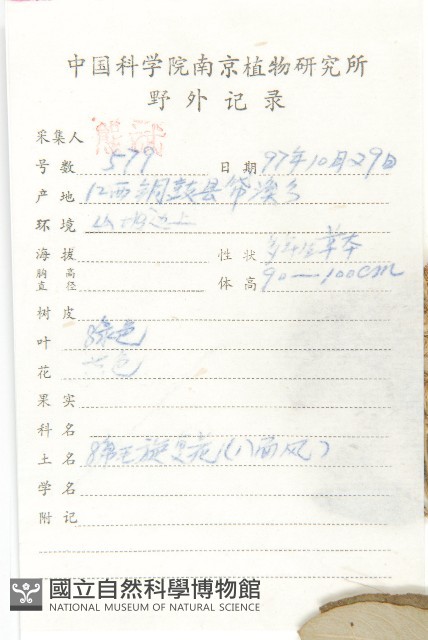 中国科学院南京植物研究所
野外记录
采集人
号数 579 日期 97年10月29日
产地 江西铜鼓县带溪乡
环境 山坡边上
海拔 性状 多年生草本
胸高直径 体高 90—100cm
树皮
叶 绿色
花 黄色
果实
科名
土名 绵毛旋复花(八面风)
学名
附记
國立自然科學博物館
NATIONAL MUSEUM OF NATURAL SCIENCE